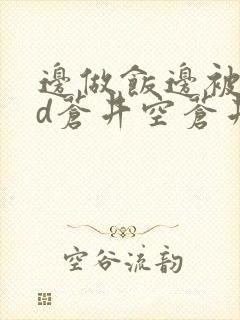 邊做飯邊被
d蒼井空蒼井
空谷流韵